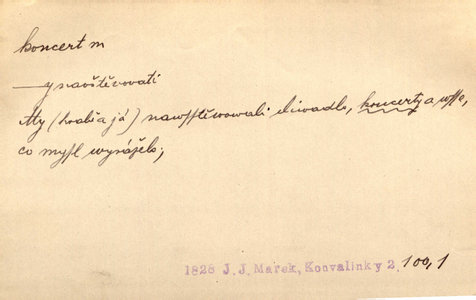 koncert m
—y navštěvovati
My (hrabě a já) nawsstěwowali diwadlo, koncerty a wsse,
co mysl wyráželo;
1828 J. J. Marek, Konvalinky 2, 100,1